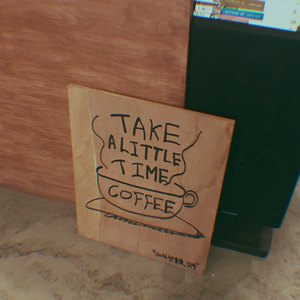 TAKE
A LITTLE
TIME
COFFEE